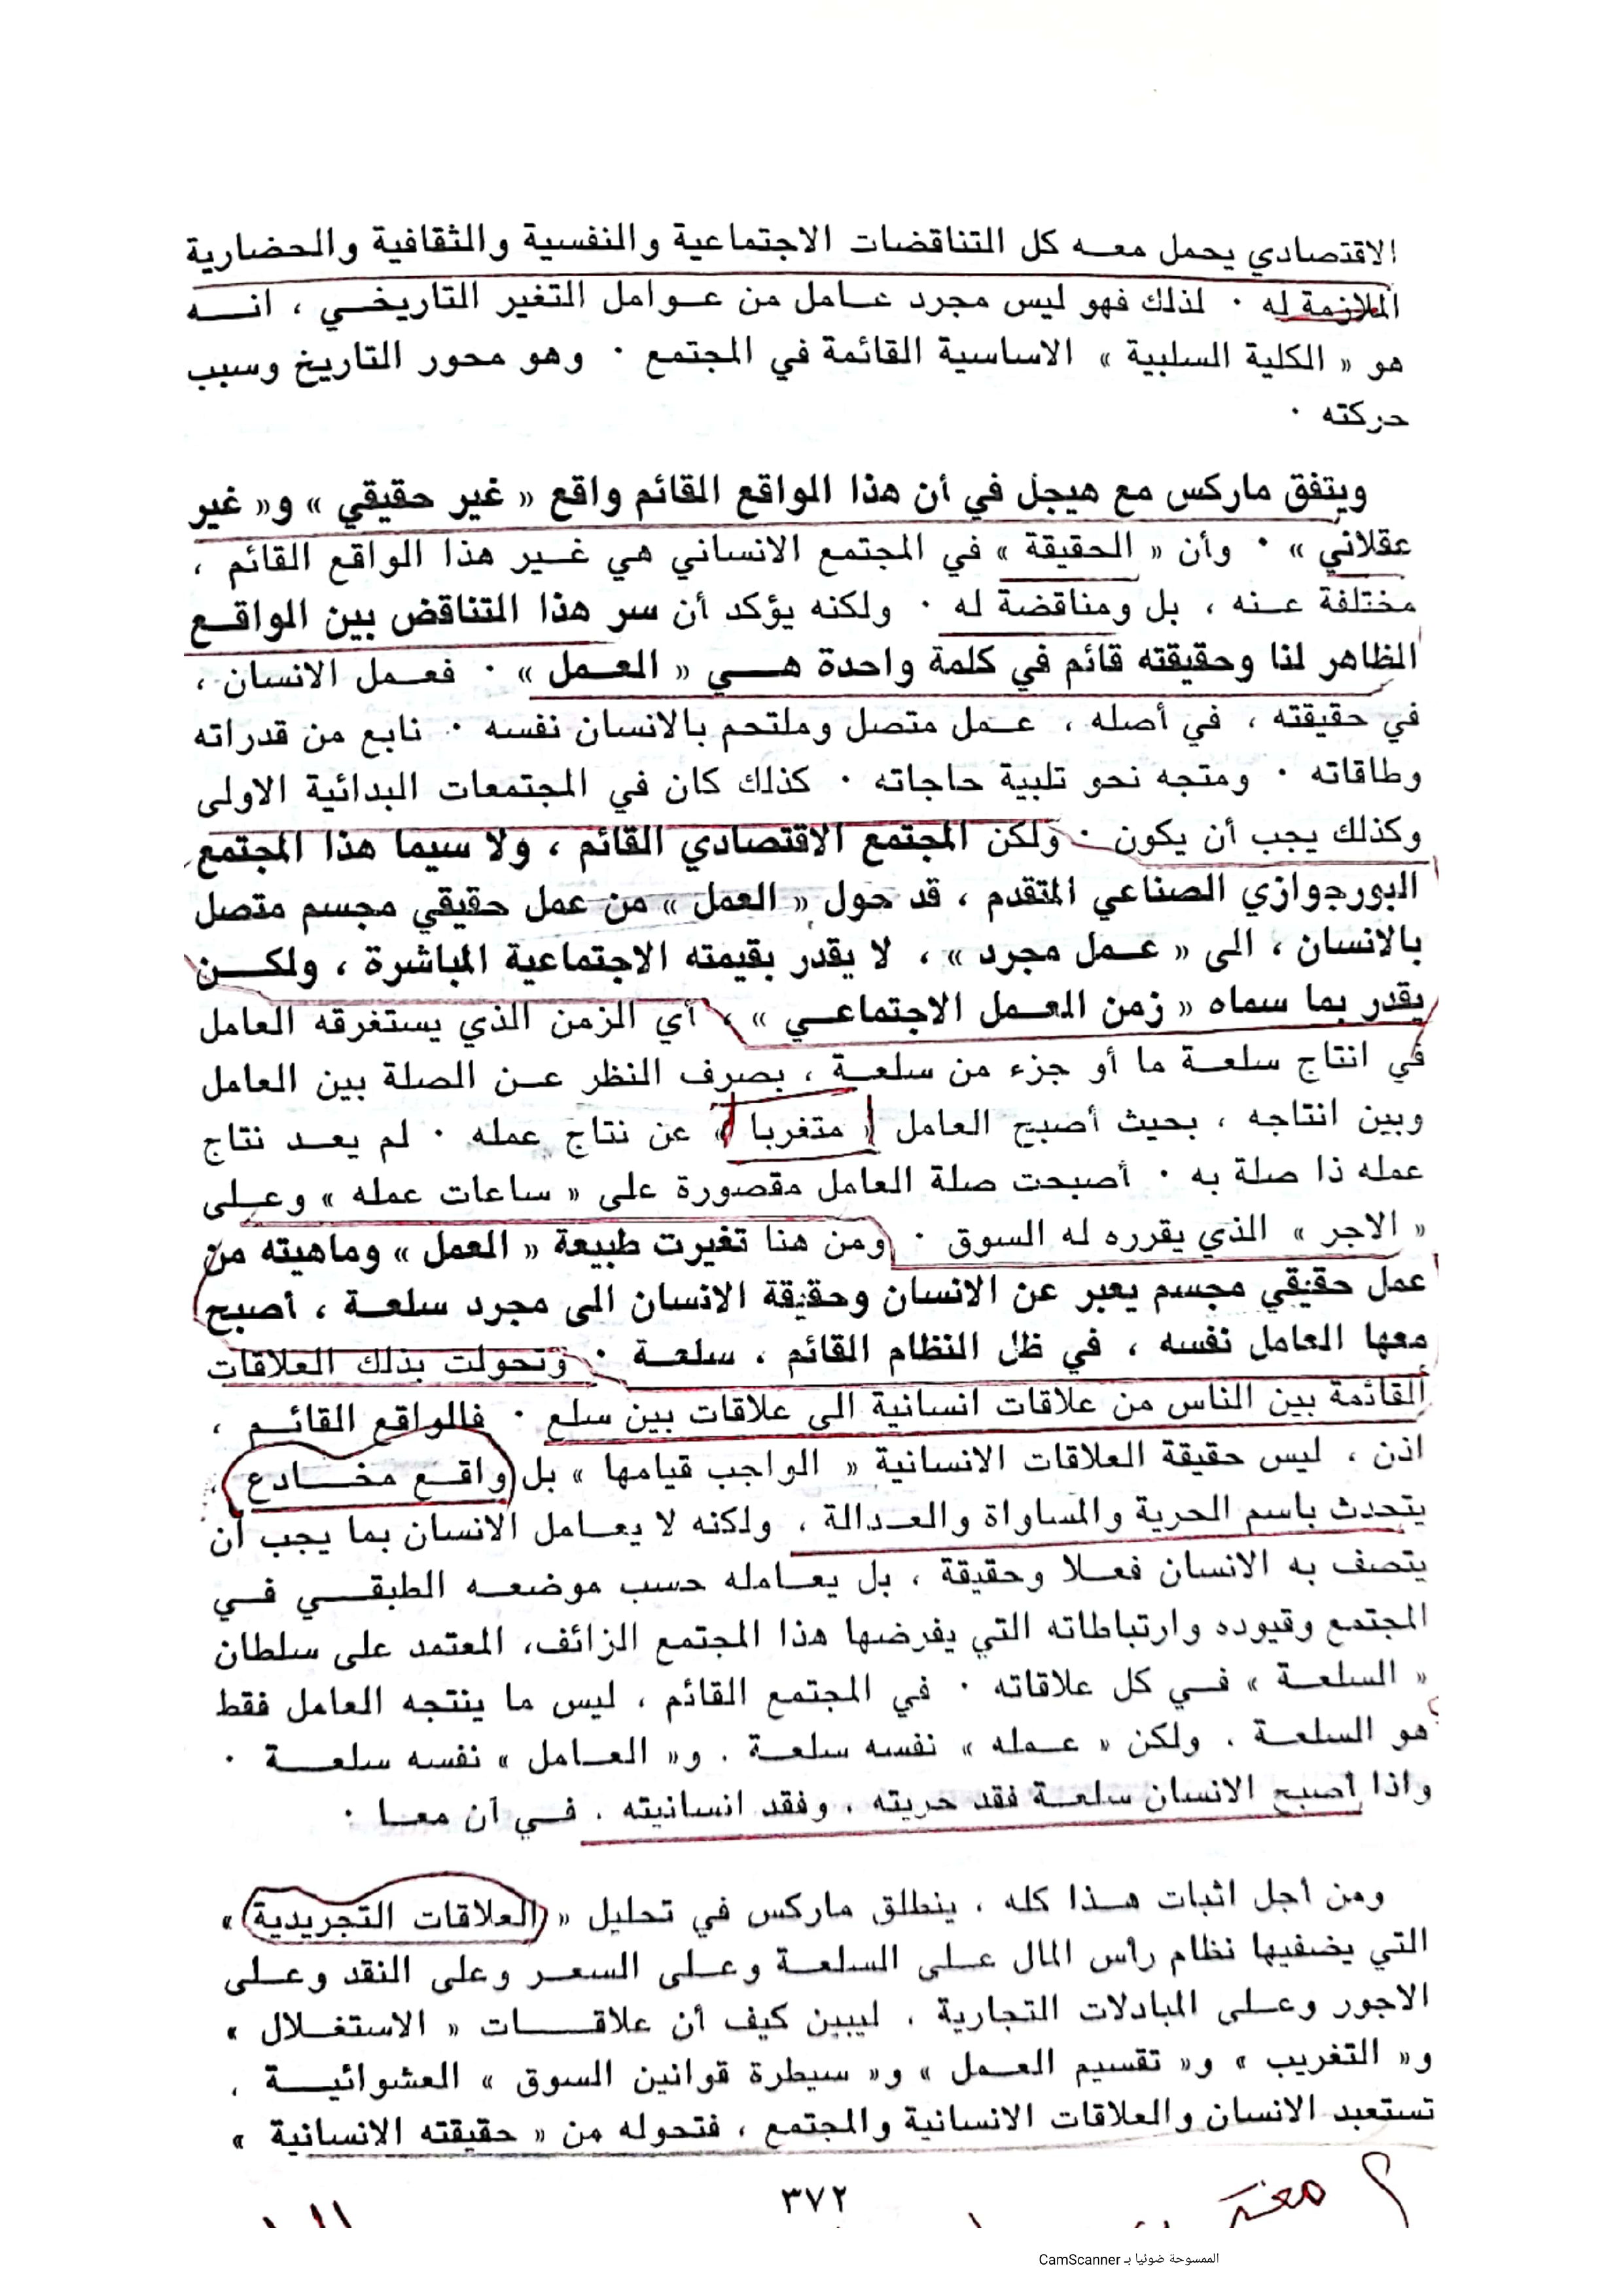 الاقتصادي يحمل معه كل التناقضات الاجتماعية والنفسية والثقافية والحضارية
الملازمة له . لذلك فهو ليس مجرد عامل من عوامل التغير التاريخي ، انه
هو « الكلية السلبية » الاساسية القائمة في المجتمع . وهو محور التاريخ وسبب
حركته .
ويتفق ماركس مع هيجل في أن هذا الواقع القائم واقع « غير حقيقي » و« غير
عقلاني » . وأن « الحقيقة » في المجتمع الانساني هي غير هذا الواقع القائم ،
مختلفة عنه ، بل ومناقضة له . ولكنه يؤكد أن سر هذا التناقض بين الواقع
الظاهر لنا وحقيقته قائم في كلمة واحدة هي « العمل » . فعمل الانسان ،
في حقيقته ، في أصله ، عمل متصل وملتحم بالانسان نفسه . نابع من قدراته
وطاقاته . ومتجه نحو تلبية حاجاته . كذلك كان في المجتمعات البدائية الاولى
وكذلك يجب أن يكون . ولكن المجتمع الاقتصادي القائم ، ولا سيما هذا المجتمع
البورجوازي الصناعي المتقدم ، قد حول « العمل » من عمل حقيقي مجسم متصل
بالانسان ، الى « عمل مجرد » ، لا يقدر بقيمته الاجتماعية المباشرة ، ولكن
يقدر بما سماه « زمن العمل الاجتماعي » ، أي الزمن الذي يستغرقه العامل
في انتاج سلعة ما أو جزء من سلعة ، بصرف النظر عن الصلة بين العامل
وبين انتاجه ، بحيث أصبح العامل « متغربا » عن نتاج عمله . لم يعد نتاج
عمله ذا صلة به . أصبحت صلة العامل مقصورة على « ساعات عمله » وعلى
« الاجر » الذي يقرره له السوق . ومن هنا تغيرت طبيعة « العمل » وماهيته من
عمل حقيقي مجسم يعبر عن الانسان وحقيقة الانسان الى مجرد سلعة ، أصبح
معها العامل نفسه ، في ظل النظام القائم ، سلعة . وتحولت بذلك العلاقات
القائمة بين الناس من علاقات انسانية الى علاقات بين سلع . فالواقع القائم ،
اذن ، ليس حقيقة العلاقات الانسانية « الواجب قيامها » بل واقع مخادع ،
يتحدث باسم الحرية والمساواة والعدالة ، ولكنه لا يعامل الانسان بما يجب أن
يتصف به الانسان فعلا وحقيقة ، بل يعامله حسب موضعه الطبقي في
المجتمع وقيوده وارتباطاته التي يفرضها هذا المجتمع الزائف، المعتمد على سلطان
« السلعة » في كل علاقاته . في المجتمع القائم ، ليس ما ينتجه العامل فقط
هو السلعة ، ولكن « عمله » نفسه سلعة . و« العامل » نفسه سلعة .
واذا أصبح الانسان سلعة فقد حريته ، وفقد انسانيته ، في آن معا .
ومن أجل اثبات هذا كله ، ينطلق ماركس في تحليل « العلاقات التجريدية »
التي يضفيها نظام رأس المال على السلعة وعلى السعر وعلى النقد وعلى
الاجور وعلى المبادلات التجارية ، ليبين كيف أن علاقات « الاستغلال »
و« التغريب » و« تقسيم العمل » و« سيطرة قوانين السوق » العشوائية ،
تستعبد الانسان والعلاقات الانسانية والمجتمع ، فتحوله من « حقيقته الانسانية »
٣٧٢
الممسوحة ضوئيا بـ CamScanner